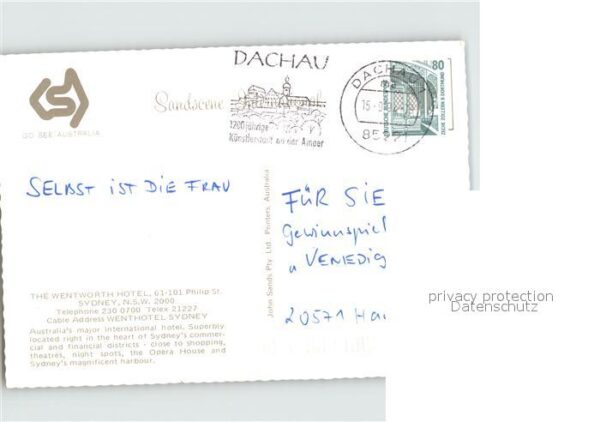 DACHAU
Sandscene International
GO SEE AUSTRALIA
1200jährige
Künstlerstadt an der Amper
DACHAU
80
DEUTSCHE BUNDESPOST
ZECHE ZOLLERN II · DORTMUND
SELBST IST DIE FRAU
FÜR SIE
Gewinnspiel
„ VENEDIG
20571 Ha.
John Sands Pty. Ltd. Printers, Australia
THE WENTWORTH HOTEL, 61-101 Philip St.
SYDNEY, N.S.W. 2000
Telephone 230 0700 Telex 21227
Cable Address WENTHOTEL SYDNEY
Australia's major international hotel. Superbly
located right in the heart of Sydney's commer-
cial and financial districts - close to shopping,
theatres, night spots, the Opera House and
Sydney's magnificent harbour.
privacy protection
Datenschutz